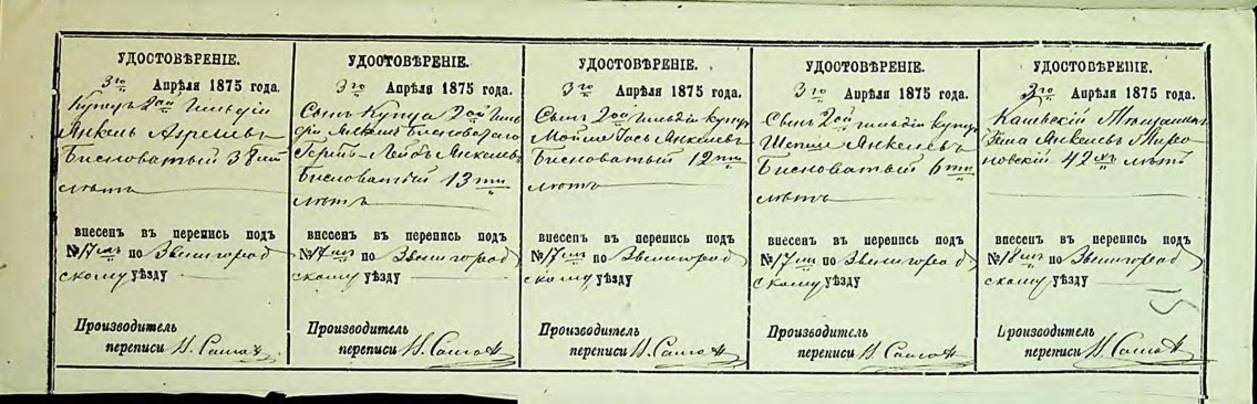 УДОСТОВѢРЕНІЕ.
3го Апрѣля 1875 года.
Купецъ 2ой гильдіи
Янкель
Бисноватый 38ми
лѣтъ
внесенъ въ перепись подъ
№17мъ по Звенигород
скому уѣзду
Производитель
переписи
УДОСТОВѢРЕНІЕ.
3го Апрѣля 1875 года.
Сынъ Купца 2ой гиль
діи
Лейбъ Янкелевъ
Бисноватый 13ти
лѣтъ
внесенъ въ перепись подъ
№17мъ по Звенигород
скому уѣзду
Производитель
переписи
УДОСТОВѢРЕНІЕ.
3го Апрѣля 1875 года.
Сынъ 2ой гильдіи купца
Янкелевъ
Бисноватый 12ти
лѣтъ
внесенъ въ перепись подъ
№17мъ по Звенигород
скому уѣзду
Производитель
переписи
УДОСТОВѢРЕНІЕ.
3го Апрѣля 1875 года.
Сынъ 2ой гильдіи купца
Янкелевъ
Бисноватый 6ти
лѣтъ
внесенъ въ перепись подъ
№17мъ по Звенигород
скому уѣзду
Производитель
переписи
УДОСТОВѢРЕНІЕ.
3го Апрѣля 1875 года.
Каневскій
Янкелевъ Миро
новскій 42хъ лѣтъ
внесенъ въ перепись подъ
№18мъ по Звенигород
скому уѣзду
Производитель
переписи